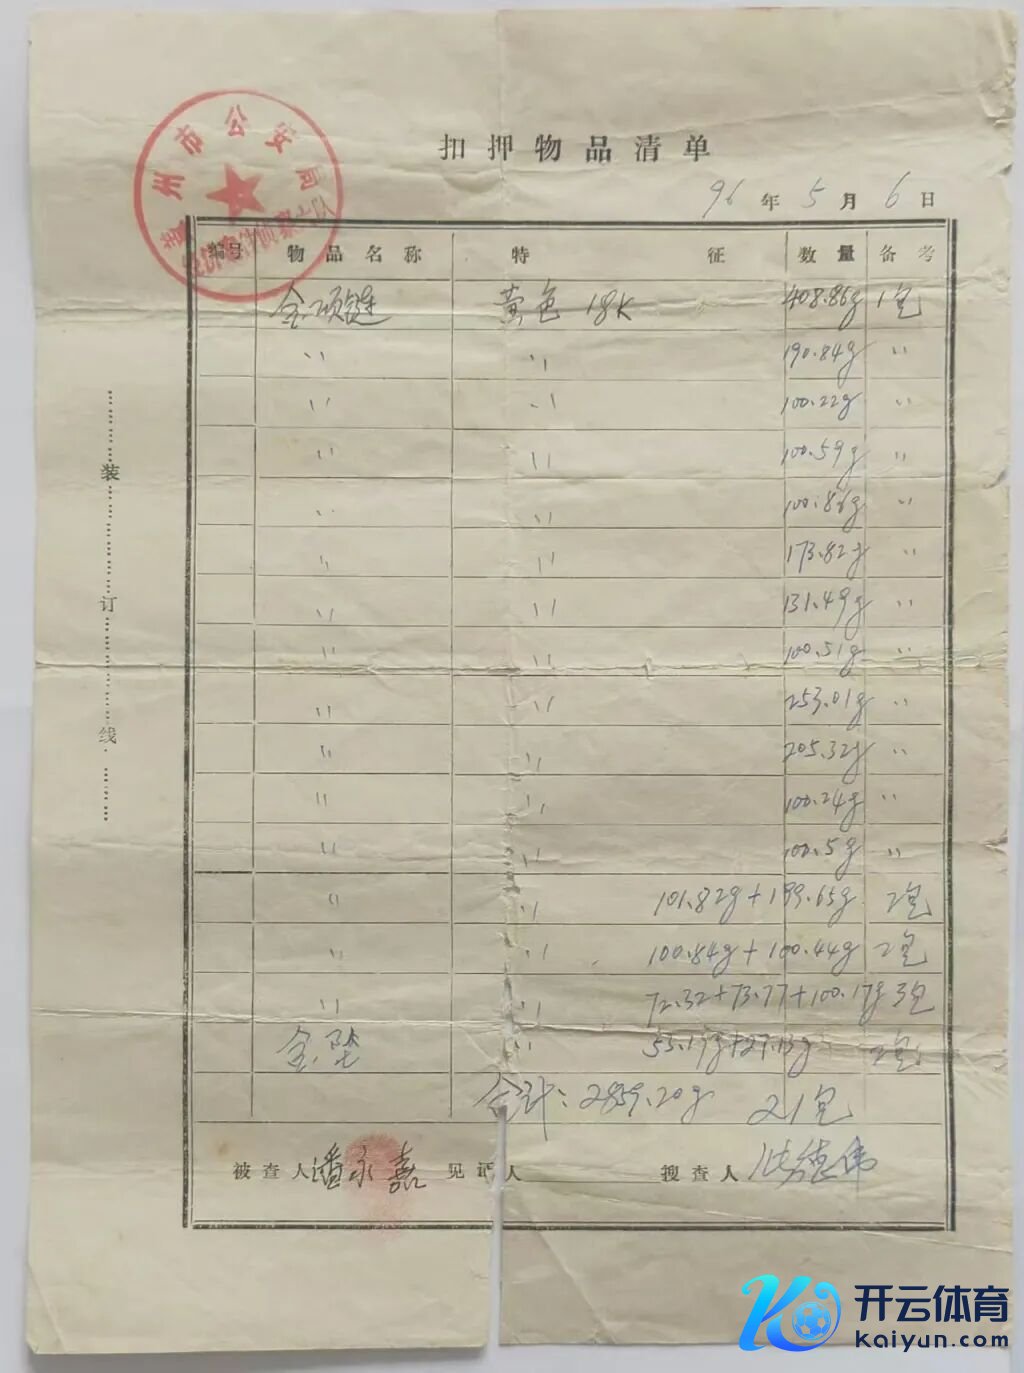 扣押物品清单
96年5月6日
编号 物品名称 特征 数量 备考
金项链 黄色 18K 408.86g 1包
〃 〃 190.84g 〃
〃 〃 100.22g 〃
〃 〃 100.59g 〃
〃 〃 100.86g 〃
〃 〃 173.82g 〃
〃 〃 131.49g 〃
〃 〃 100.51g 〃
〃 〃 253.01g 〃
〃 〃 205.32g 〃
〃 〃 100.24g 〃
〃 〃 100.5g 〃
〃 〃 101.82g+199.65g 2包
〃 〃 100.84g+100.44g 2包
〃 〃 72.32+73.77+100.17g 3包
金坠 〃 2包
合计:2859.20g 21包
被查人 潘永嘉 见证人 搜查人
装订线
州市公安局
开云体育
Kaiyun.com